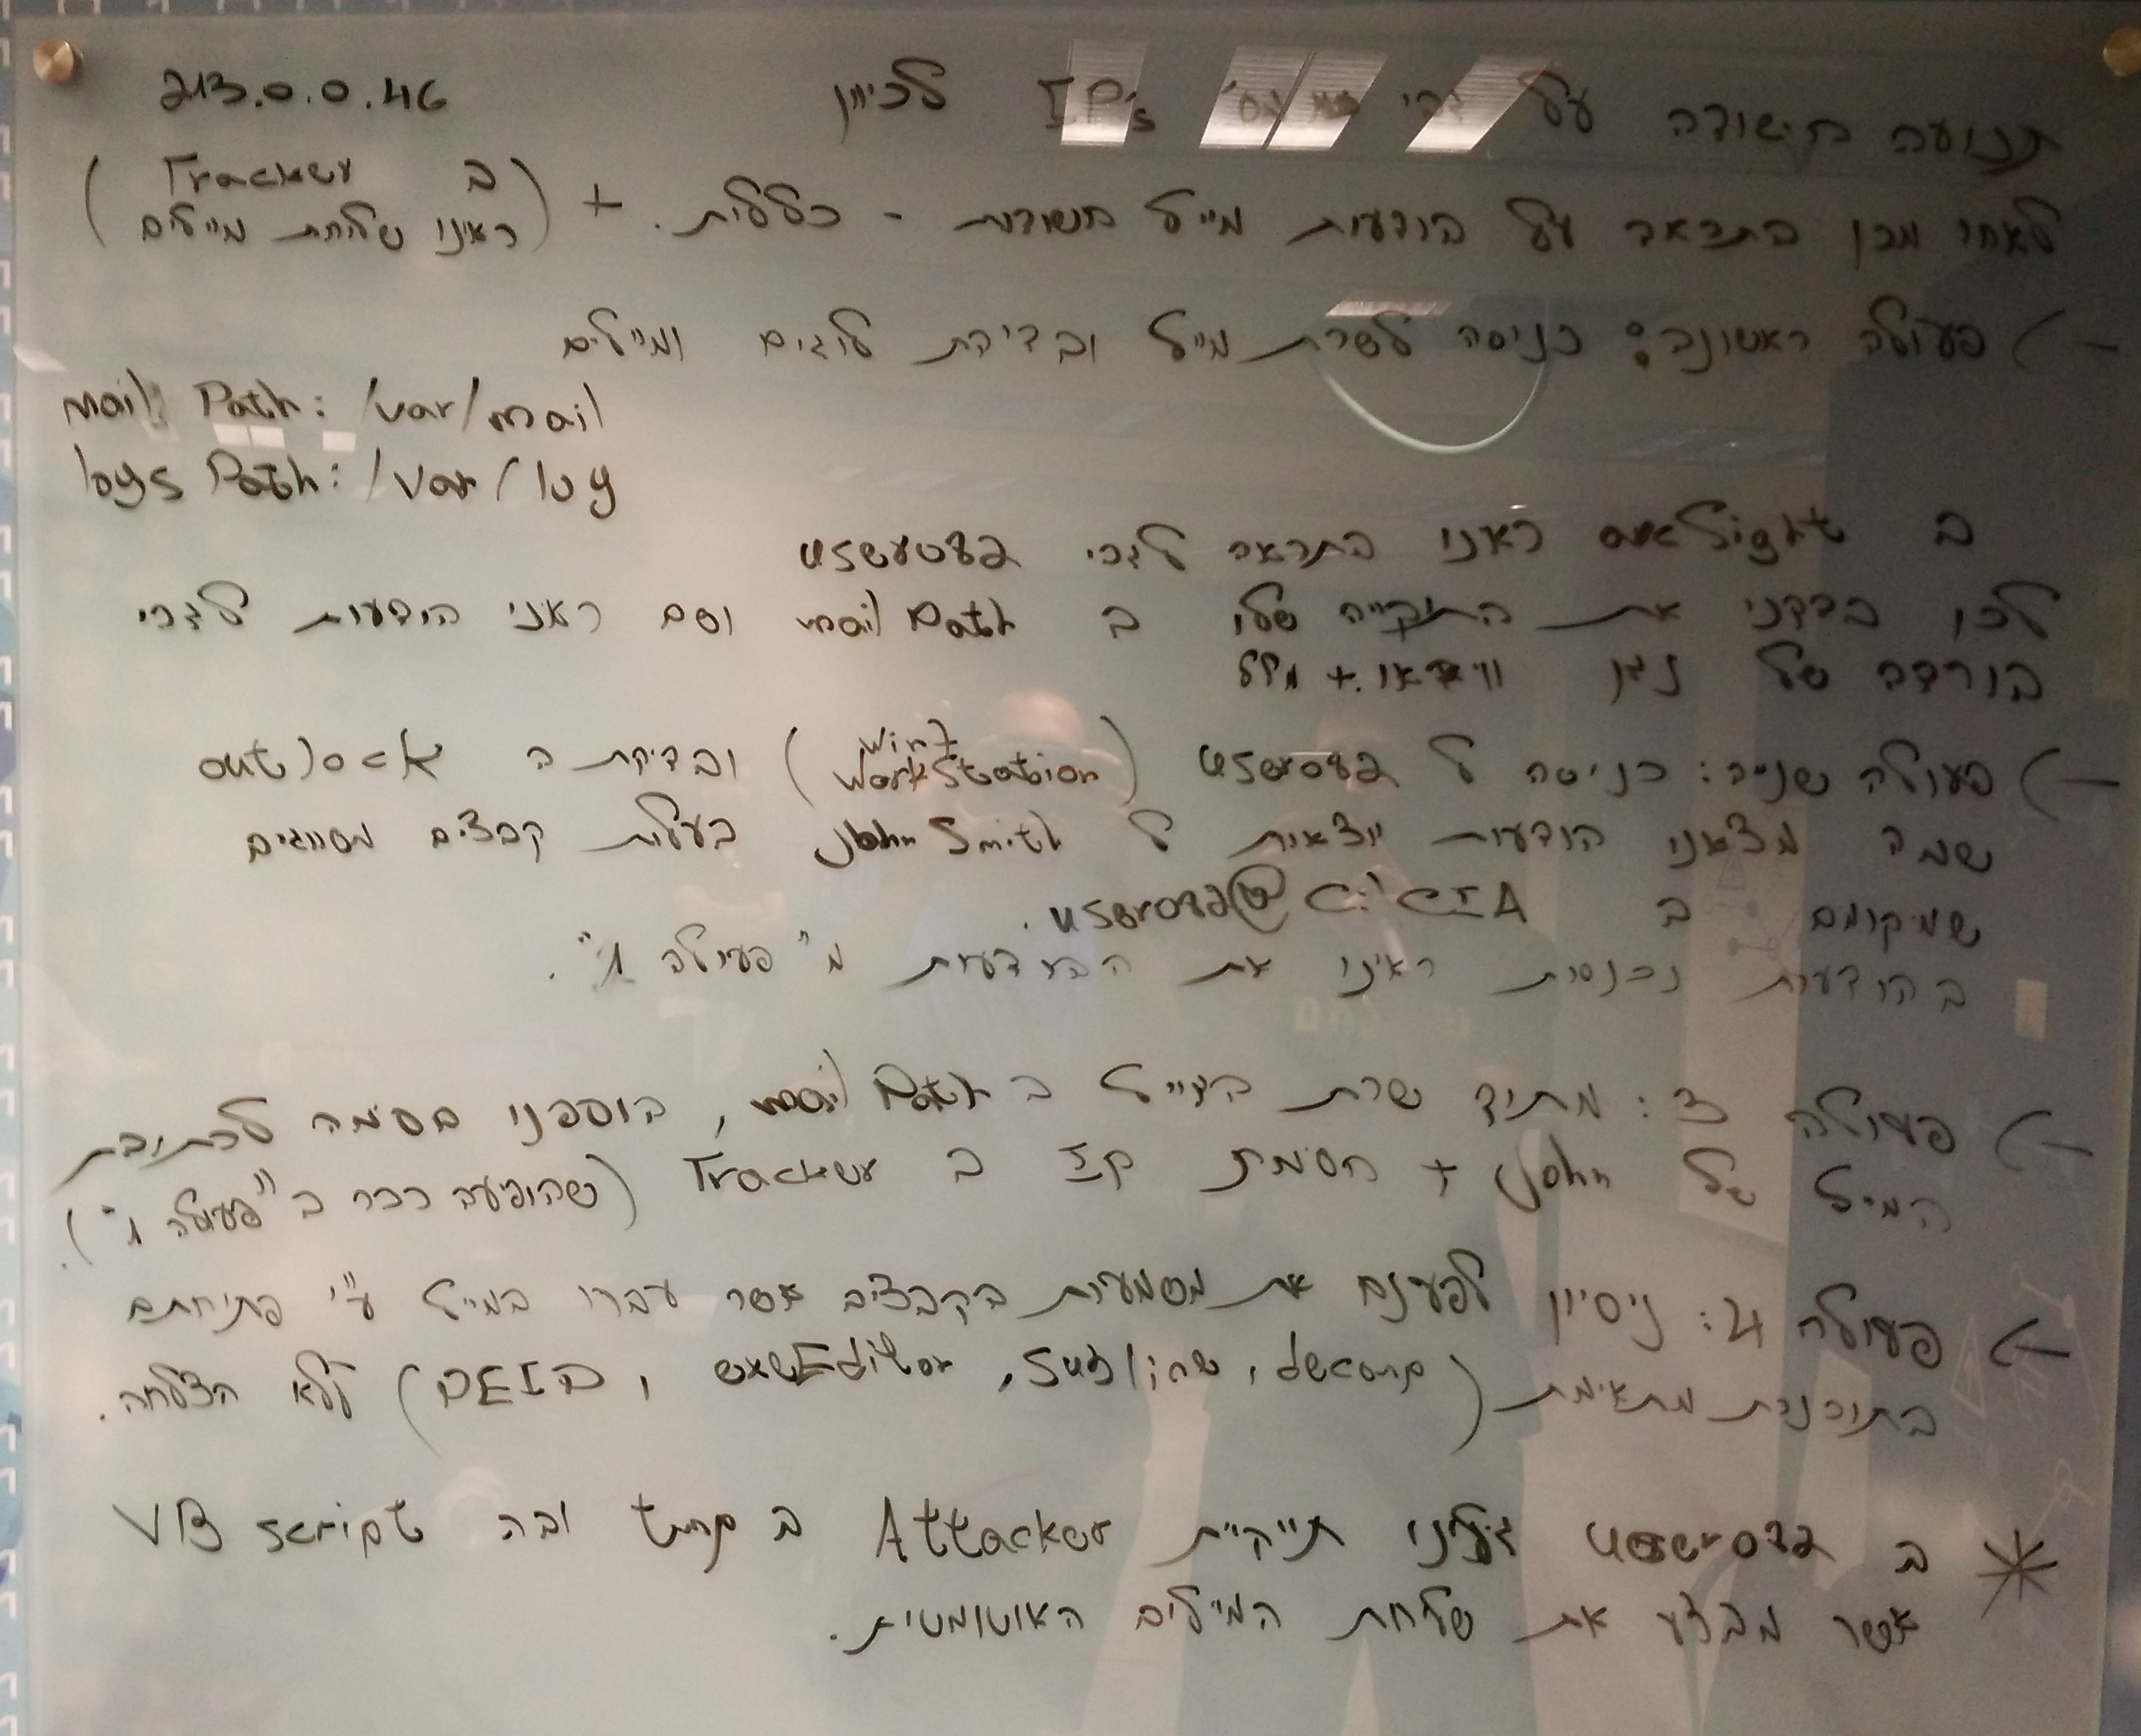 תנועה חשודה על ידי IP's לכיוון 213.0.0.46
לאחר מכן התראה על הודעות מייל חשודות - כללית. + (ב Tracker ראינו שליחת מיילים)
פעולה ראשונה: כניסה לשרת מייל ובדיקת לוגים ומיילים
mail Path: /var/mail
logs Path: /var/log
ב ראנו התראה לגבי user082
לכן בדקנו את התקייה שלו ב mail Path ושם ראנו הודעות לגבי
הורדה של נגן ווידאו +
פעולה שנייה: כניסה ל user082 (win7 WorkStation) ובדיקת ה outlook
שמה מצאנו הודעות יוצאות ל John Smith בעלות קבצים מסווגים
שמיקומם ב user082@
בהודעות נכנסות ראינו את ההודעות מ"פעולה 1".
פעולה 3: שרת המייל ב mail Path, הוספנו חסימה לכתובת
המייל של John + חסימת IP ב Tracker (שהופיעה כבר ב"פעולה 1").
פעולה 4: ניסיון לפענח את משמעות הקבצים אשר עברו במייל ע"י פתיחתם
בתוכנות מתאימות (PEID, exeEditor, Sublime, decomp) ללא הצלחה.
* ב user082 גילינו תייקיית Attacker ב tmp ובה VB script
אשר מבצע את שליחת המיילים האוטומטית.